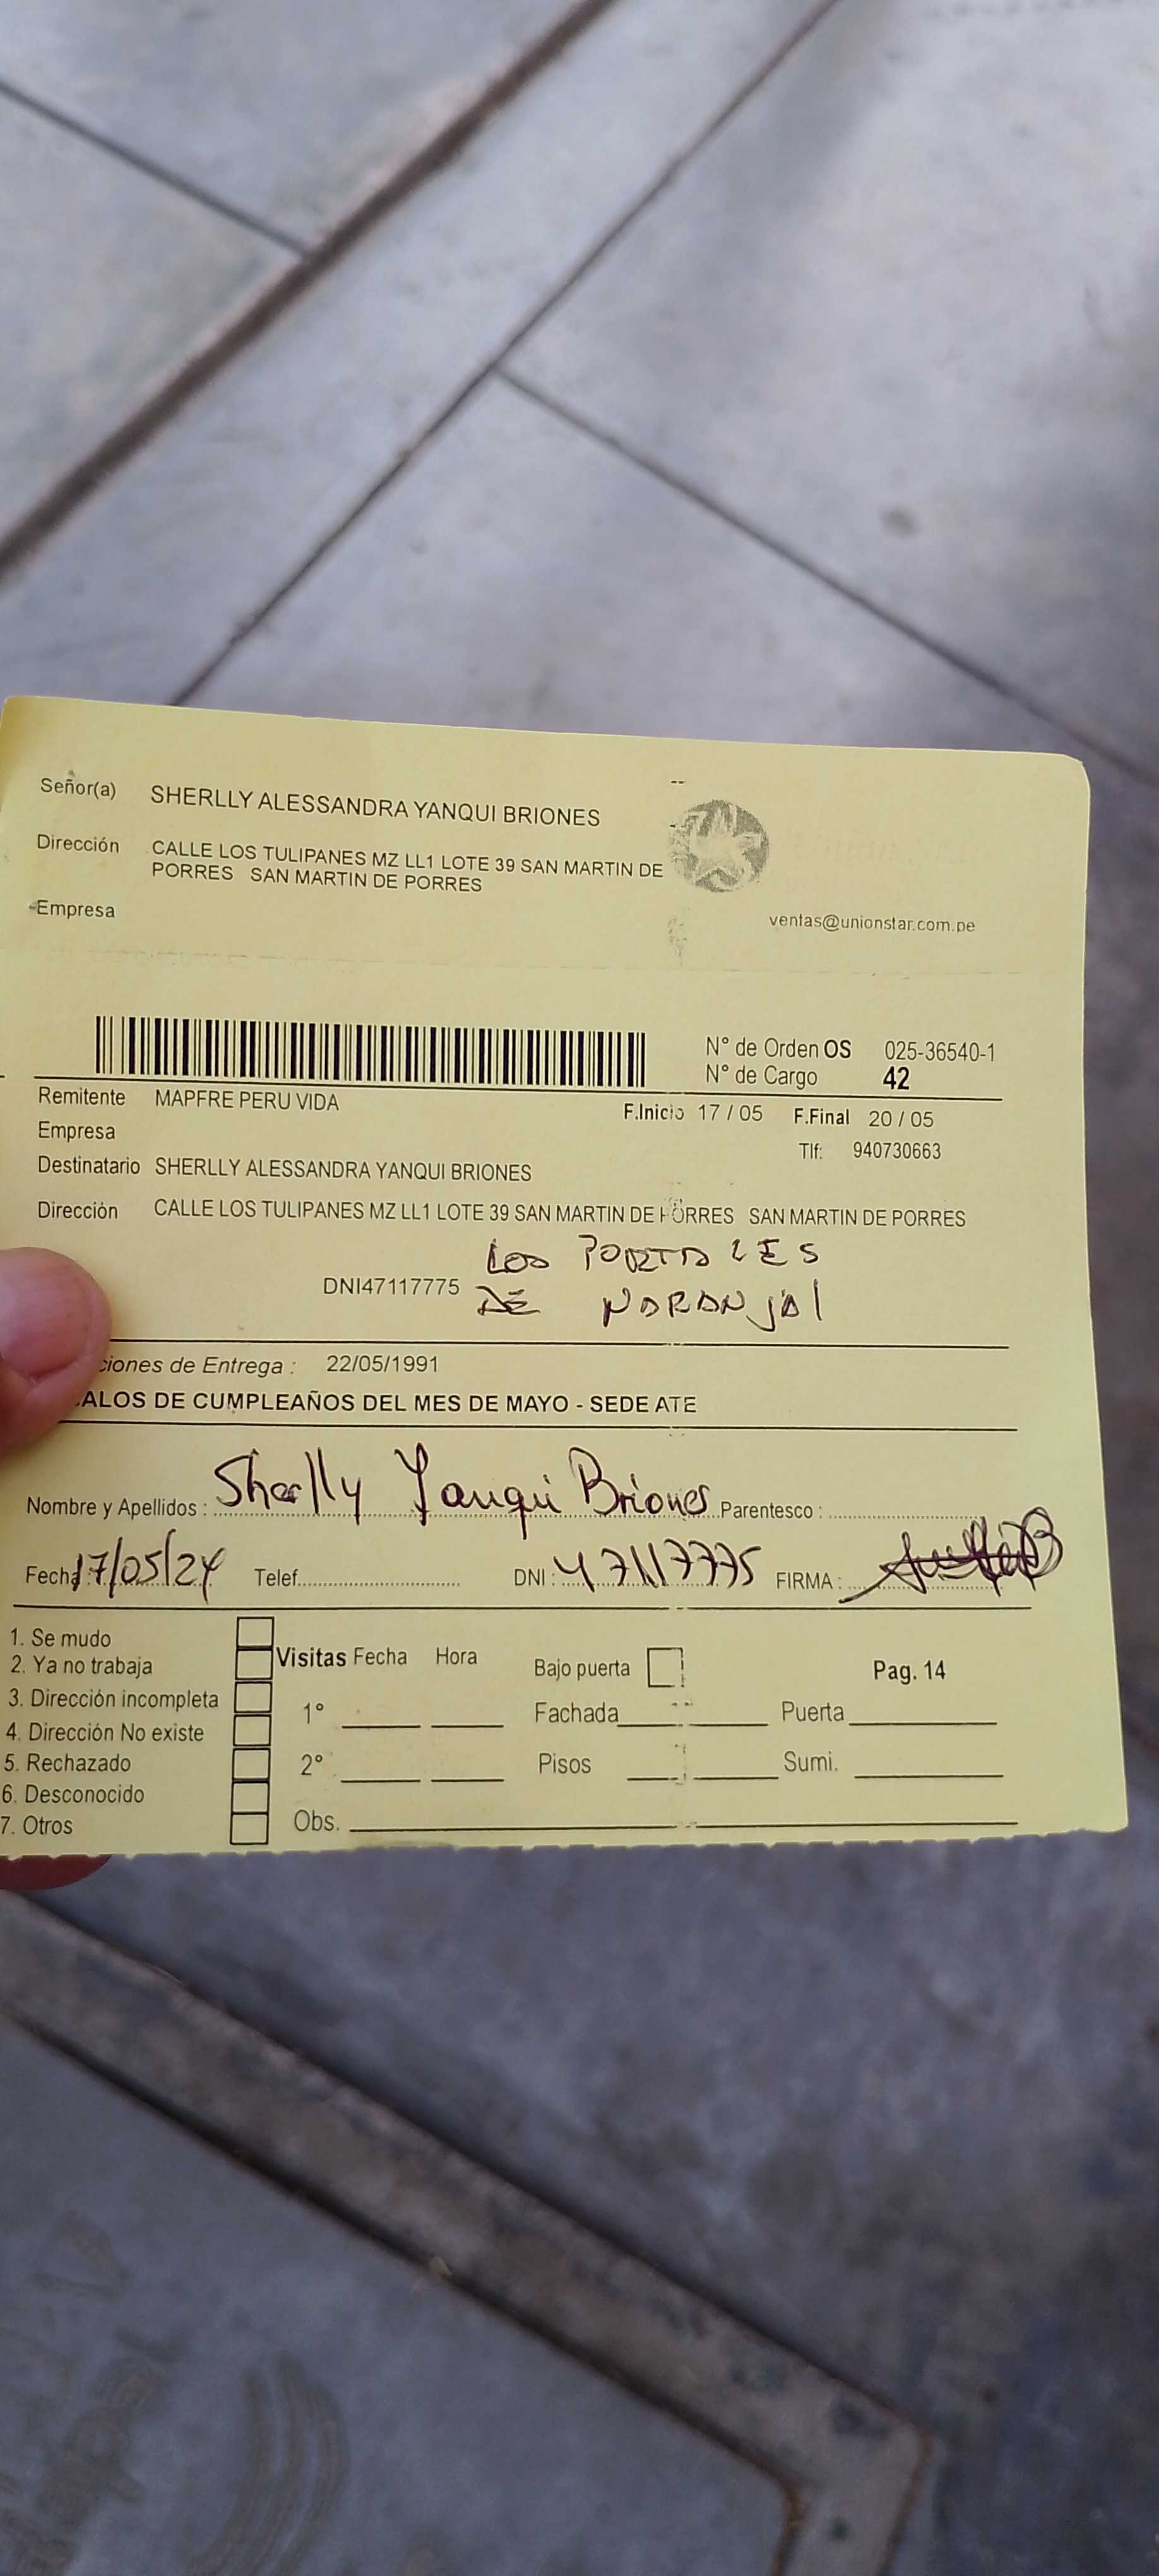 Señor(a) SHERLLY ALESSANDRA YANQUI BRIONES
Dirección CALLE LOS TULIPANES MZ LL1 LOTE 39 SAN MARTIN DE
PORRES SAN MARTIN DE PORRES
Empresa
ventas@unionstar.com.pe
N° de Orden OS 025-36540-1
N° de Cargo 42
Remitente MAPFRE PERU VIDA
F.Inicio 17 / 05 F.Final 20 / 05
Empresa
Tlf: 940730663
Destinatario SHERLLY ALESSANDRA YANQUI BRIONES
Dirección CALLE LOS TULIPANES MZ LL1 LOTE 39 SAN MARTIN DE PORRES SAN MARTIN DE PORRES
LOS PORTALES
DNI47117775 DE NARANJAl
ciones de Entrega : 22/05/1991
ALOS DE CUMPLEAÑOS DEL MES DE MAYO - SEDE ATE
Nombre y Apellidos : Sherlly Yanqui Briones Parentesco :
Fecha: 17/05/24 Telef. DNI : 47117775 FIRMA :
1. Se mudo
2. Ya no trabaja
3. Dirección incompleta
4. Dirección No existe
5. Rechazado
6. Desconocido
7. Otros
Visitas Fecha Hora
1°
2°
Obs.
Bajo puerta
Fachada
Pisos
Pag. 14
Puerta
Sumi.